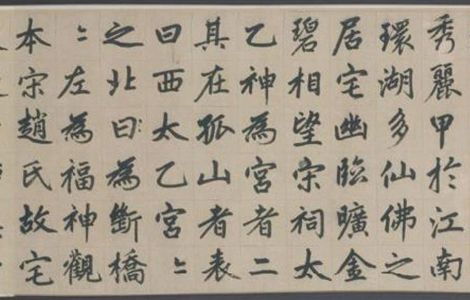 秀麗甲於江南
環湖多仙佛之
居宅幽臨曠金
碧相望宋祠太
乙神為宮者二
其在孤山者表
曰西太乙宮〻
之北曰為斷橋
〻左為福神觀
本宋趙氏故宅